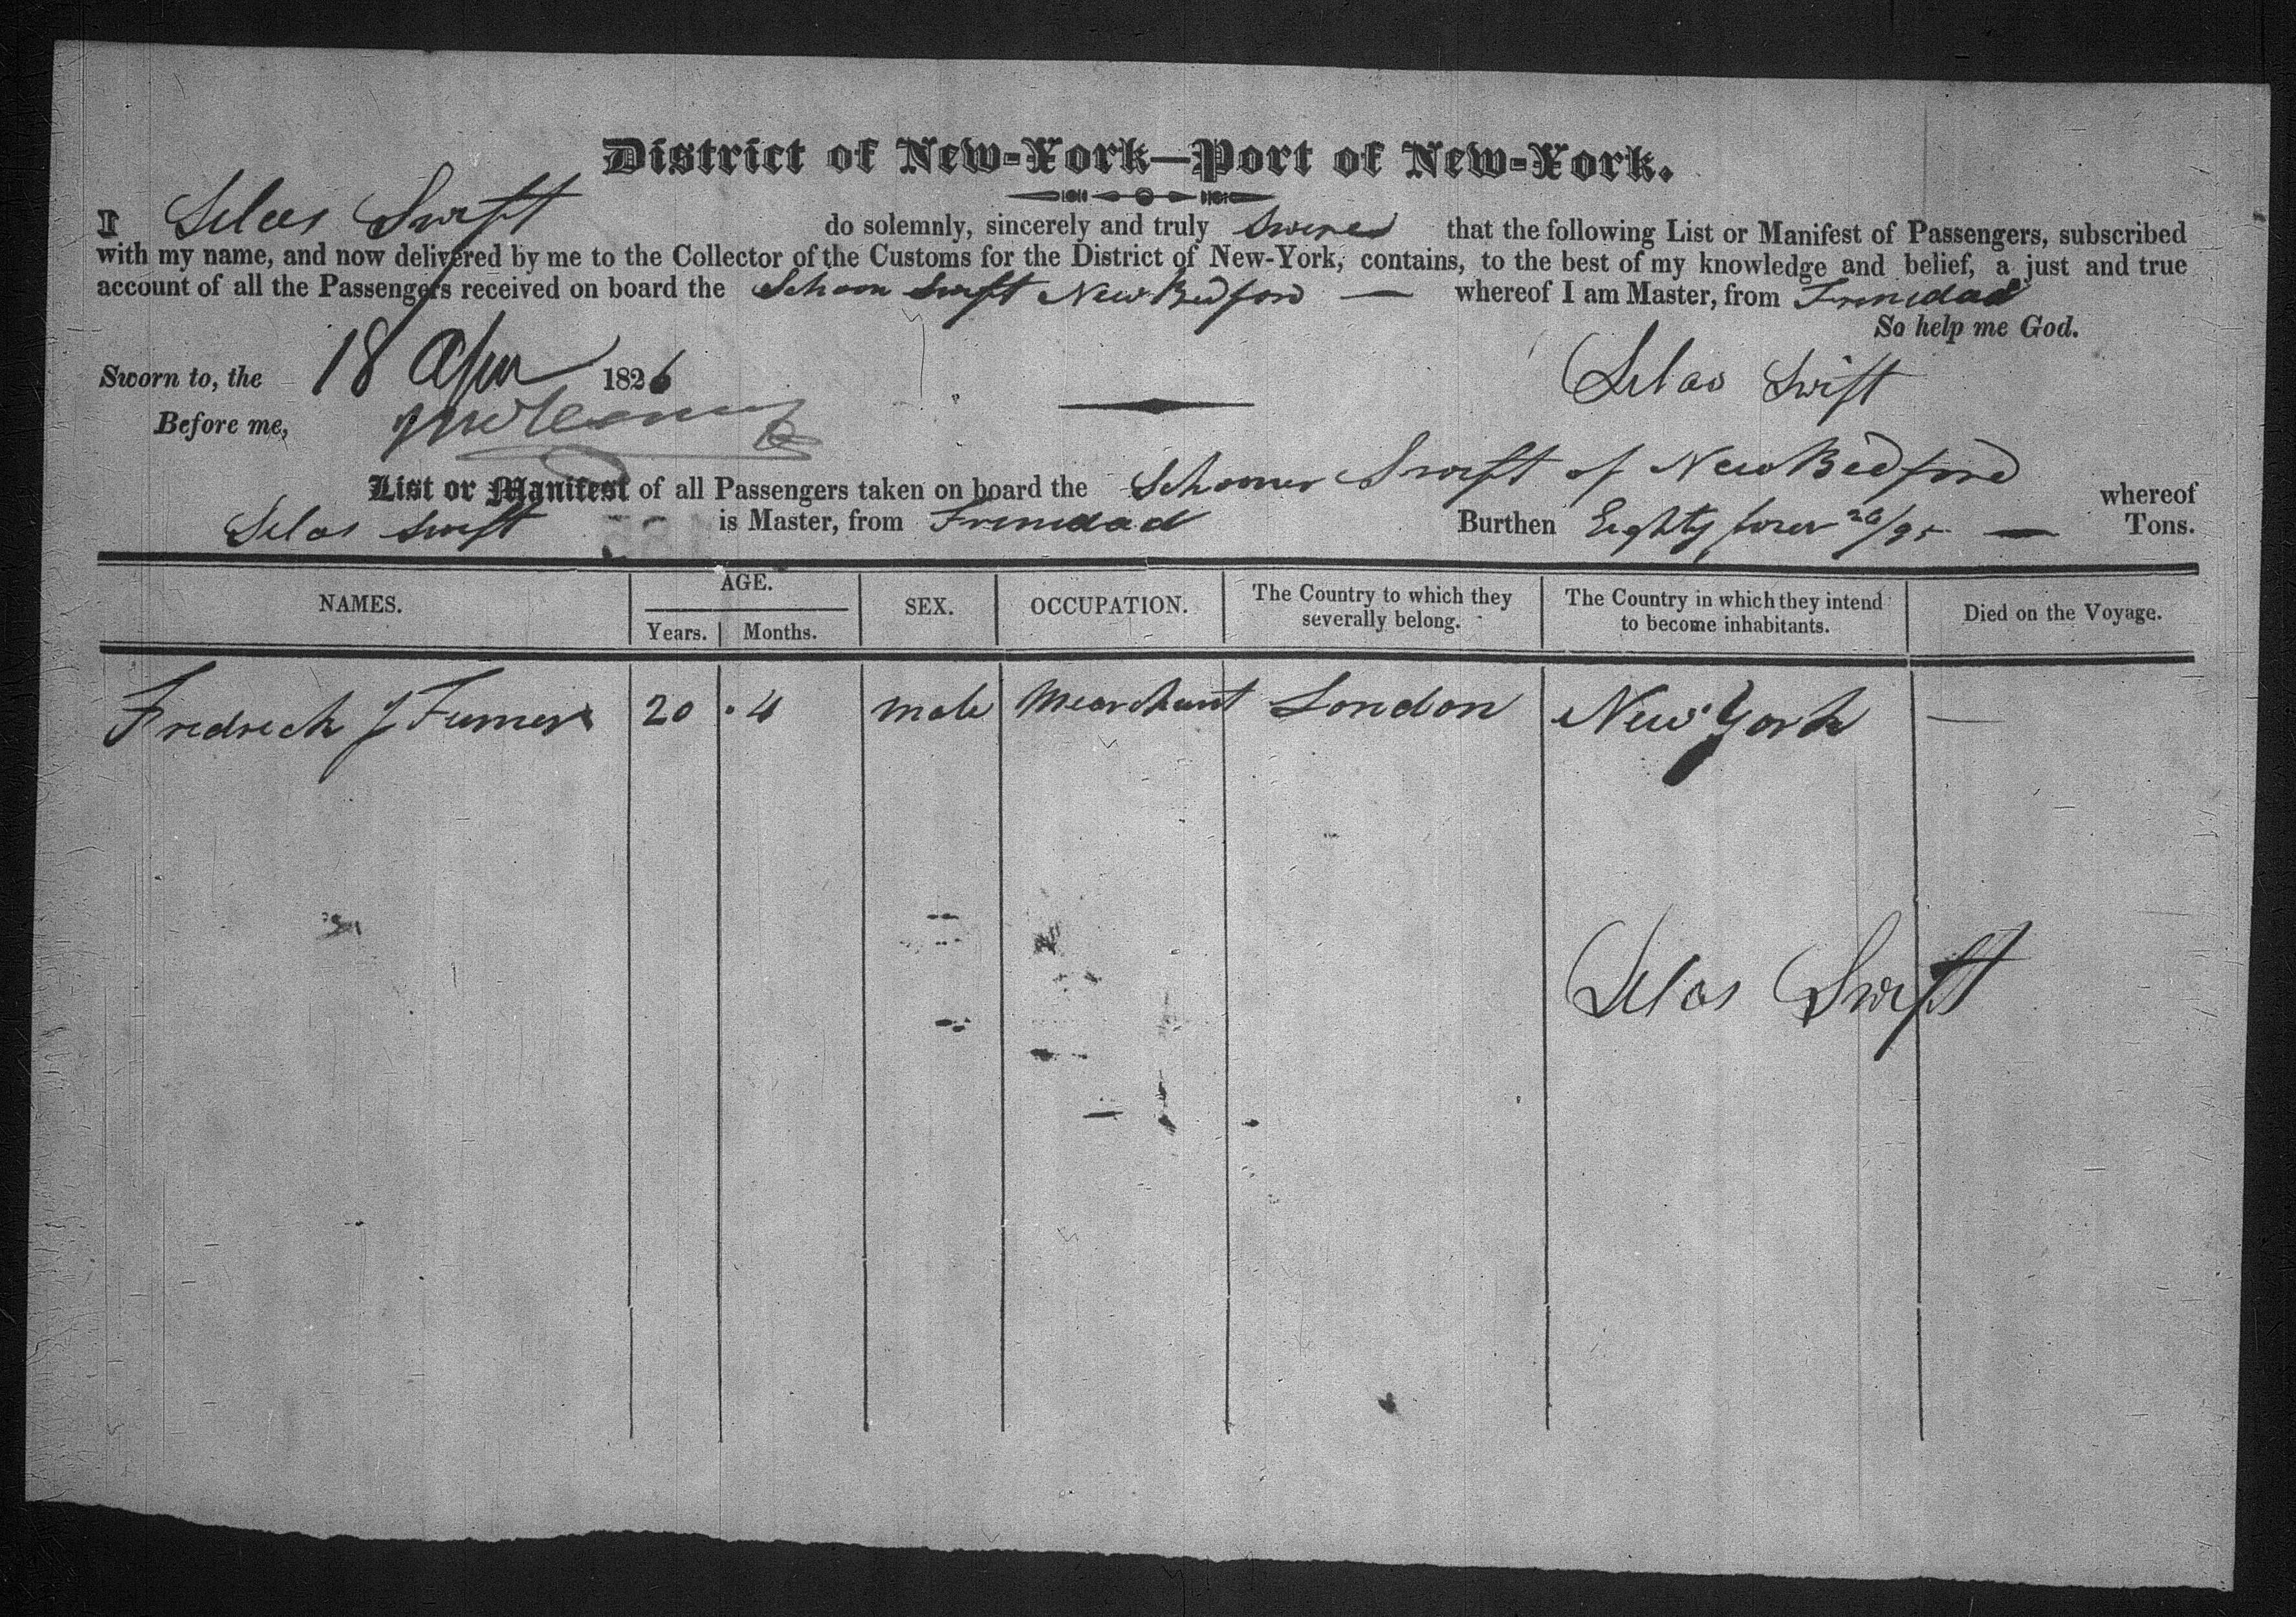 District of New-York—Port of New-York.
I Silas Swift do solemnly, sincerely and truly Swere that the following List or Manifest of Passengers, subscribed
with my name, and now delivered by me to the Collector of the Customs for the District of New-York, contains, to the best of my knowledge and belief, a just and true
account of all the Passengers received on board the Schoon Swift New Bedford — whereof I am Master, from Trinidad
So help me God.
Sworn to, the 18 Apr 1826
Silas Swift
Before me,
List or Manifest of all Passengers taken on board the Schooner Swift of New Bedford whereof
Silas Swift is Master, from Trinidad Burthen Eighty four 26/95 — Tons.
NAMES. AGE. SEX. OCCUPATION. The Country to which they severally belong. The Country in which they intend to become inhabitants. Died on the Voyage.
Years. Months.
Fredrick J 20 4 male Mearchant London New York —
Silas Swift